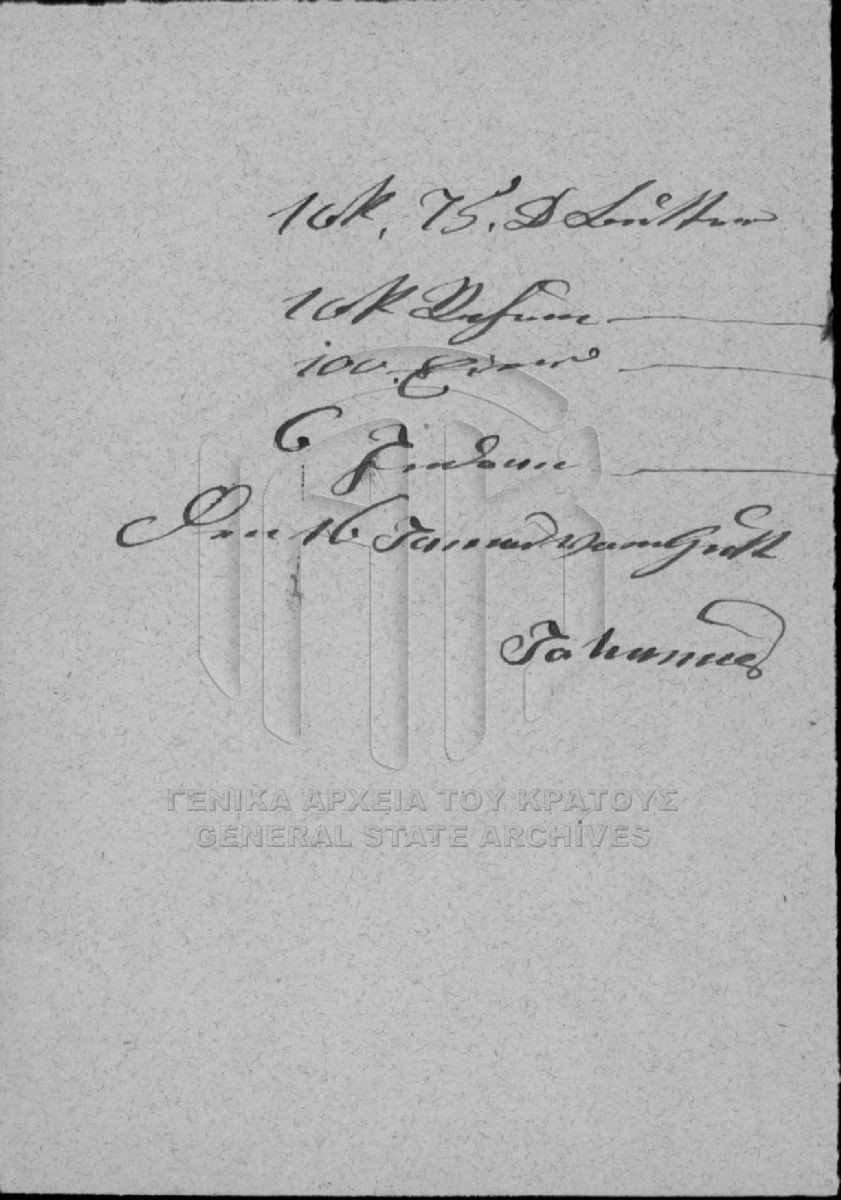 16k, 75. D Butter
16k Rahm
100. Eier
6
Den 16 Januar vom Gutt
Johannes
ΓΕΝΙΚΑ ΑΡΧΕΙΑ ΤΟΥ ΚΡΑΤΟΥΣ
GENERAL STATE ARCHIVES